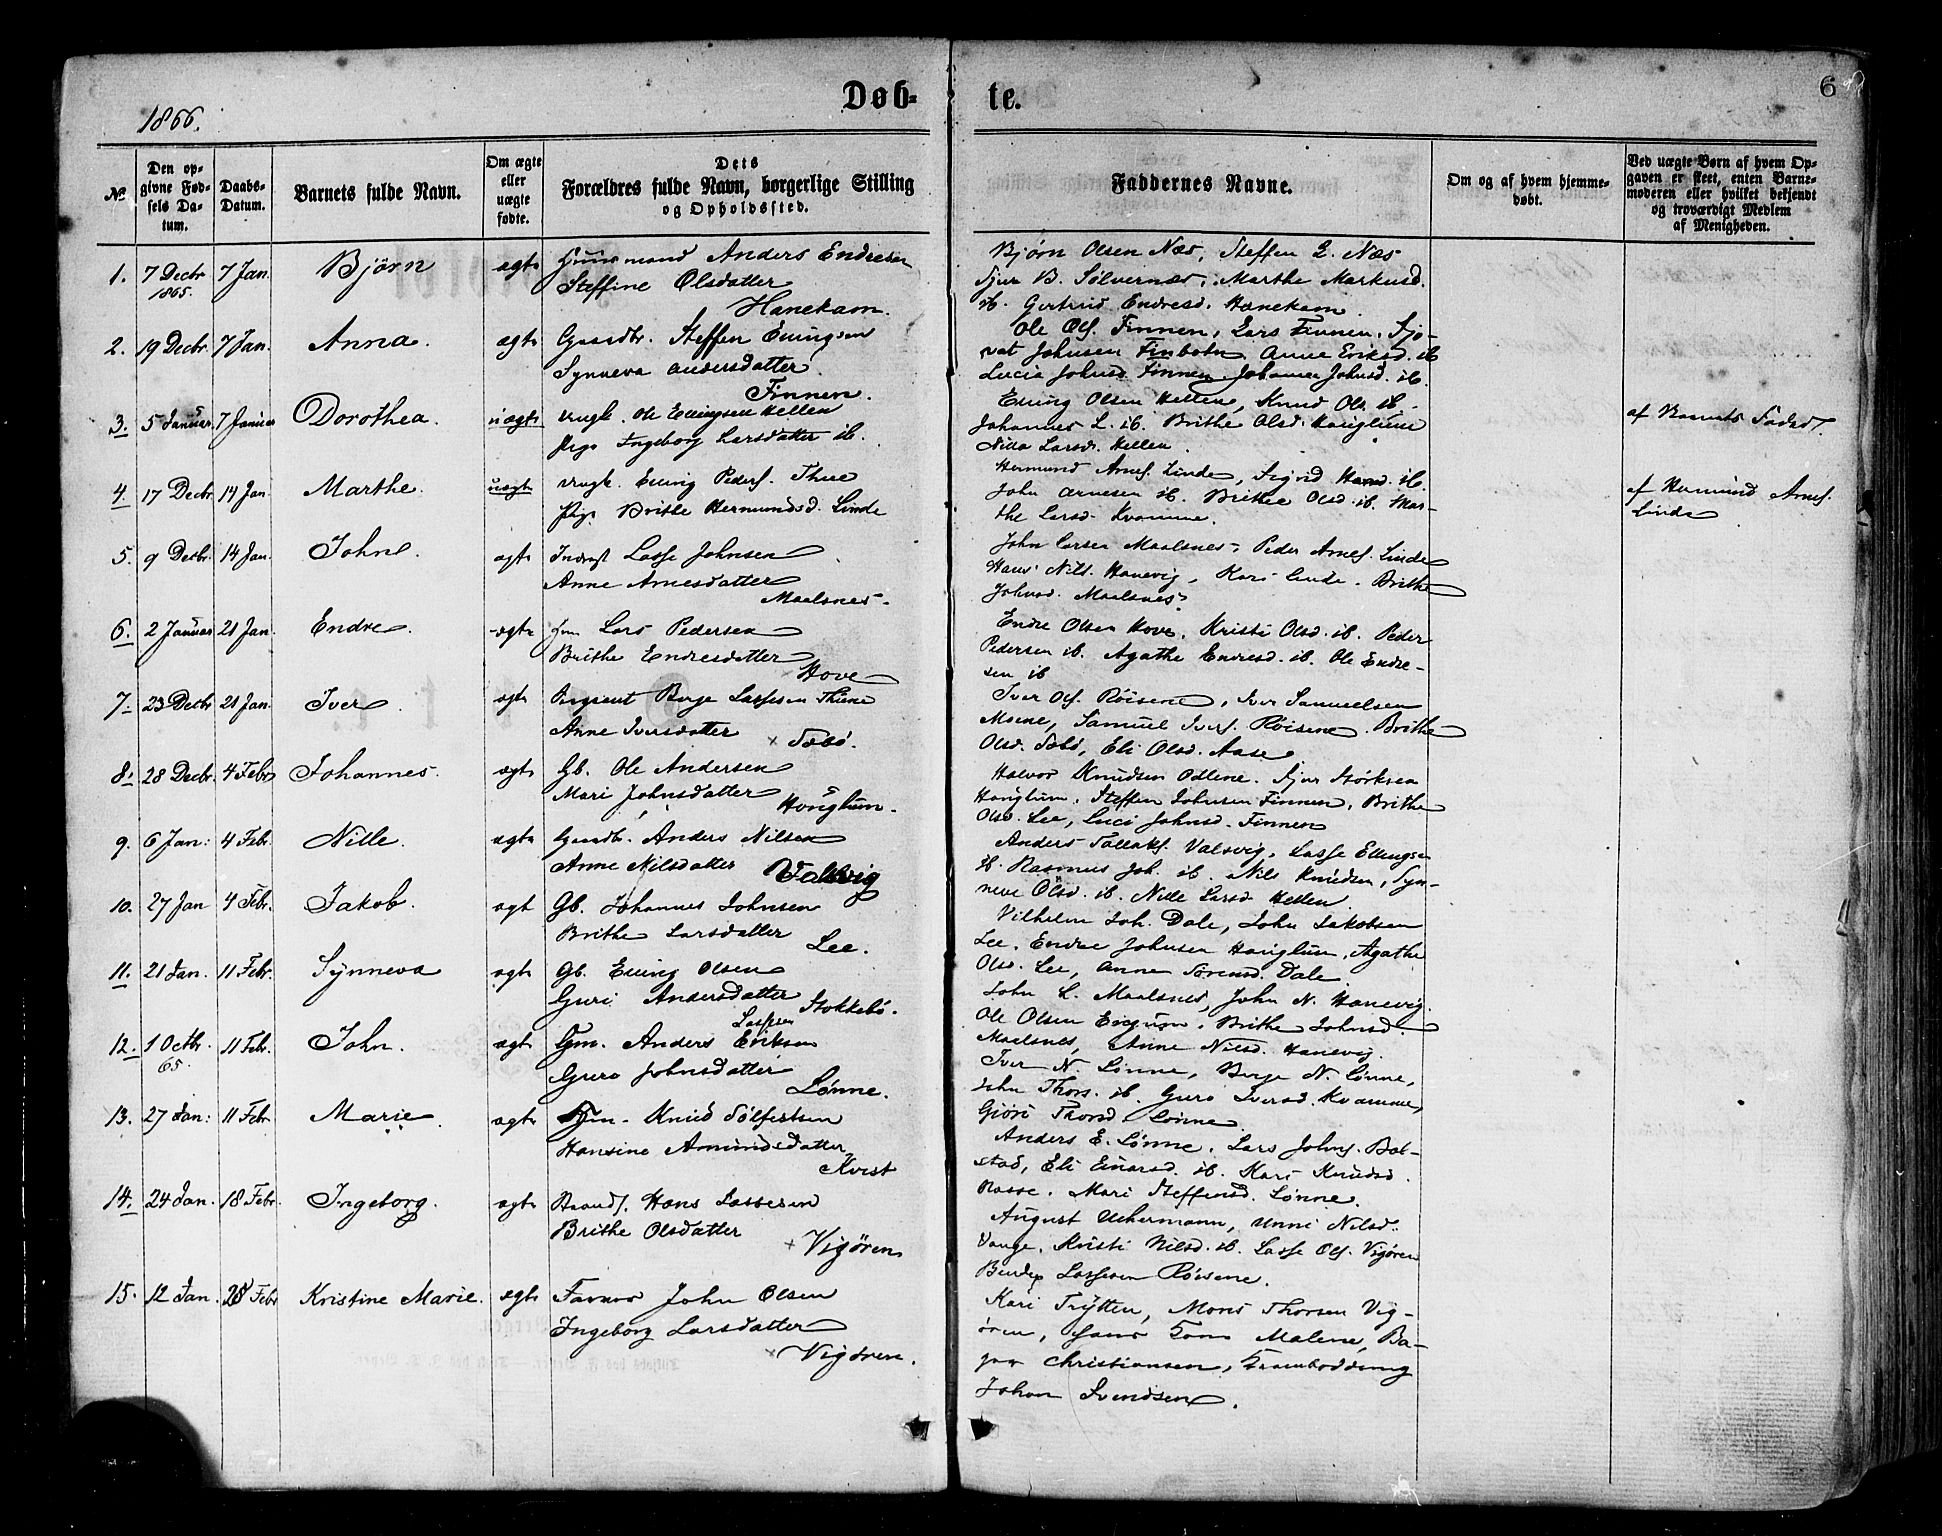 1866.
Døb-
te.
6
No
Den op-
givne Fød-
sels Da-
tum.
Daabs-
Datum.
Barnets fulde Navn.
Om ægte
eller
uægte
fødte.
Dets
Forældres fulde Navn, borgerlige Stilling
og Opholdssted.
Faddernes Navne.
Om og af hvem hjemme-
døbt.
Ved uægte Børn af hvem Op-
gaven er skeet, enten Barne-
moderen eller hvilket bekjendt
og troværdigt Medlem
af Menigheden.
1. 7 Decbr 1865. 7 Jan. Bjørn ægte Huusmand Anders Endresen
Steffine Olsdatter
Hanekam.
Bjørn Olsen Næs, Steffen E. Næs
Sjur B. Sølvernæs, Marthe Markusd.
ib. Gertrud Endresd. Hanekam.
2. 19 Decbr. 7 Jan. Anna. ægte Gaardbr. Steffen Ellingsen
Synneva Andersdatter
Finnen.
Ole Ols. Finnen, Lars Finnen, Sjo-
vat Johnsen Finbotn, Anne Eriksd. ib
Lucia Johnsd. Finnen, Johanna Johnsd. ib.
3. 5 Januar 7 Januar Dorothea. uægte Ungk. Ole Ellingsen Hellen
Pige Ingeborg Larsdatter ib.
Elling Olsen Hellen, Knud Ols. ib.
Johannes L. ib. Brithe Olsd. Hønglum
Nilla Larsd. Hellen.
af Barnets Fader
4. 17 Decbr 14 Jan. Marthe. uægte Ungk. Elling Peders. Thue
Pige Brithe Hermundsd. Linde
Hermund Arnes. Linde, Sigrid Hansd. ib.
John Arnesen ib. Brithe Olsd. ib. Mar-
the Larsd. Kvamme.
af Hermund Arnes.
Linde
5. 9 Decbr. 14 Jan. Johne. ægte Inderst Lasse Johnsen
Anne Arnesdatter
Maalsnes.
John Larsen Maalsnes, Peder Arnes. Linde
Hans Nils. Hanevig, Kari Linde, Brithe
Johnsd. Maalsnes.
6. 2 Januar 21 Jan. Endre. ægte Lars Pedersen
Brithe Endresdatter
Hove
Endre Olsen Hove, Kristi Olsd. ib. Peder
Pedersen ib. Agathe Endresd. ib. Ole Endre-
sen ib
7. 23 Decbr 21 Jan. Iver ægte Sergeant Berge Lassesen Thue
Anne Iversdatter
× Sæbø.
Iver Ols. Røisene, Iver Samuelsen
Moene, Samuel Ivers. Røisene. Brithe
Olsd. Sæbø, Eli Olsd. Aase
8. 28 Decbr. 4 Febr Johannes. ægte Gb. Ole Andersen
Mari Johnsdatter
Hønglum.
Halvor Knudsen Odlene. Sjur Størksen
Hønglum. Steffen Johnsen Finnen, Brithe
Olsd. Lee, Luci Johnsd. Finnen
9. 6 Jan: 4 Febr. Nille. ægte Gaardb. Anders Nilsen
Anne Nilsdatter Valsvig
Anders Tollaks. Valsvig, Lasse Ellingsen
ib. Rasmus Joh. ib. Nils Knudsen, Syn-
neve Olsd. ib. Nille Larsd. Hellen.
10. 27 Jan 4 Febr. Jakob. ægt Gb. Johannes Johnsen
Brithe Larsdatter
Lee.
Vilhelm Joh. Dale, John Jakobsen
Lee, Endre Johnsen Hønglum, Agathe
Olsd. Lee, Anne Sørensd. Dale
11. 21 Jan. 11 Febr. Synneva ægte Gb. Elling Olsen
Guri Andersdatter
Stokkebø.
John L. Maalsnes, John N. Hanevig
Ole Olsen Engum. Brithe Johnsd.
Maalsnes, Anne Nilsd. Hanevig.
12. 1 Octbr. 65. 11 Febr. John. ægte Hm. Anders Eriksen Lassesen
Guro Johnsdatter
Lønne.
Iver N. Lønne, Berge N. Lønne,
John Thors. ib. Guro Iversd. Kvamme,
Gjøri Thorsd. Lønne
13. 27 Jan: 11 Febr Marie ægte Hm. Knud Sølfestsen
Hansine Amundsdatter
Kvist
Anders E. Lønne, Lars Johns. Bol-
stad, Eli Einarsd. ib. Kari Knudsd.
Rasse. Mari Steffensd. Lønne.
14. 24 Jan. 18 Febr. Ingeborg. ægte Hans Lassesen
Brithe Olsdatter
× Vigøren
August Uchermann, Unni Nilsd.
Vange. Kristi Nilsd. ib. Lasse Ols. Vigøren
Bendix Lassesen Røisene.
15. 12 Jan. 28 Febr Kristine Marie. ægte Farver John Olsen
Ingeborg Larsdatter
× Vigøren.
Kari Trytten, Mons Thorsen Vig-
øren, Malene, Ba-
ger Christiansen, Kramboddreng
Johan Svendsen.